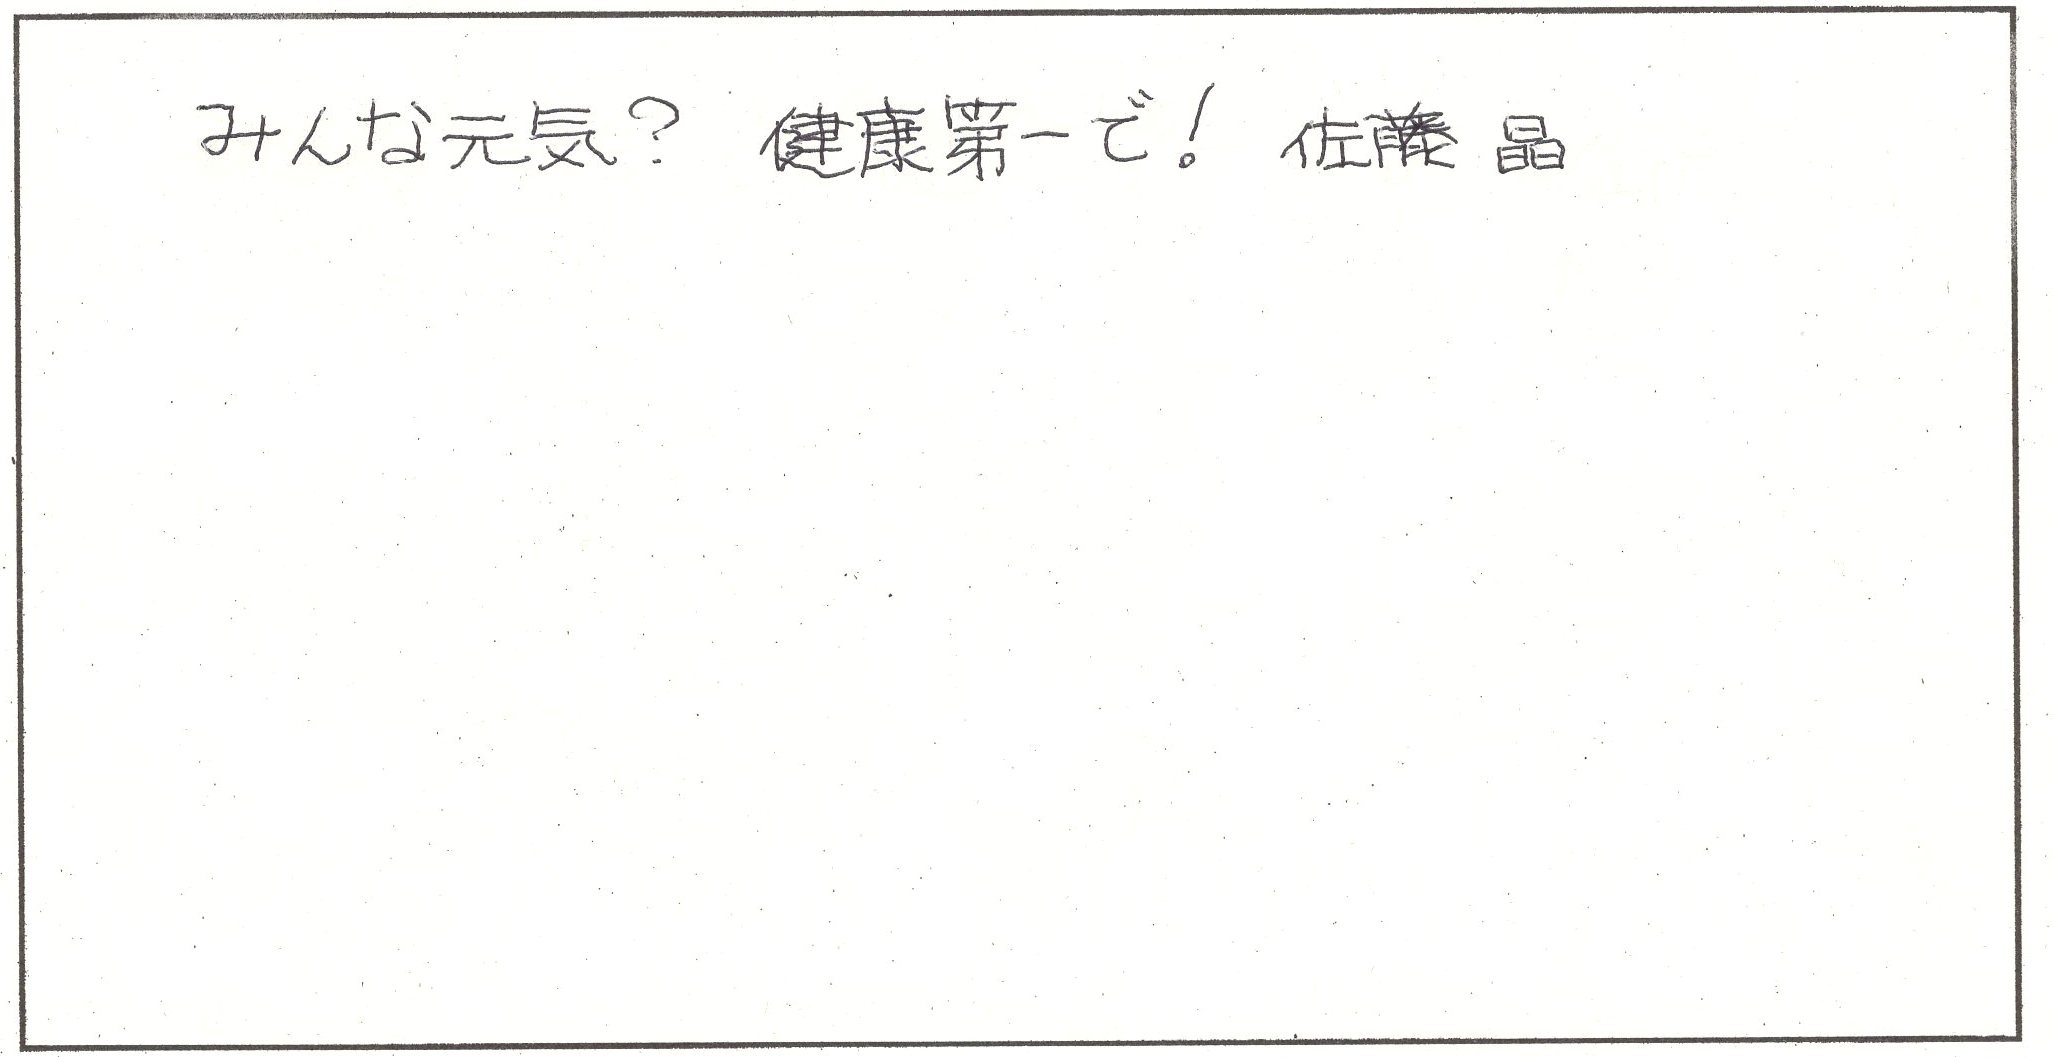 みんな元気？　健康第一で！　佐藤 晶